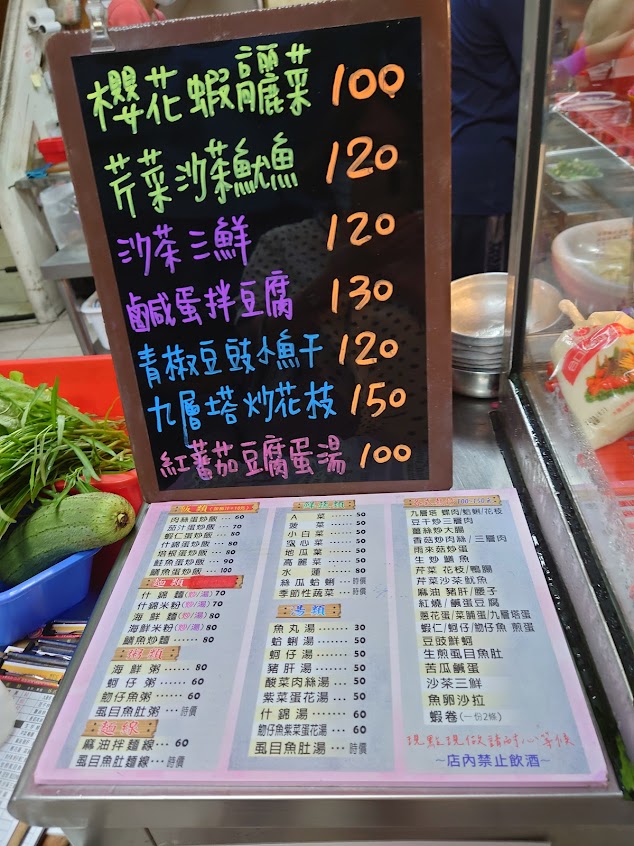 櫻花蝦高麗菜 100
芹菜沙茶魷魚 120
沙茶三鮮 120
鹹蛋拌豆腐 130
青椒豆豉小魚干 120
九層塔炒花枝 150
紅蕃茄豆腐蛋湯 100
飯類
肉絲蛋炒飯 ... 60
茄汁蛋炒飯 ... 70
蝦仁蛋炒飯 ... 80
什錦蛋炒飯 ... 80
培根蛋炒飯 ... 80
鮭魚蛋炒飯 ... 90
鯛魚蛋炒飯 ... 100
麵類
什錦麵(炒/湯)70
什錦米粉(炒/湯)70
海鮮麵(炒/湯)80
海鮮米粉(炒/湯)80
鱔魚炒麵 ... 80
粥類
海鮮粥 ... 80
蚵仔粥 ... 60
魩仔魚粥 ... 60
虱目魚肚粥 ... 時價
麵線
麻油拌麵線 ... 60
虱目魚肚麵線 ... 時價
蔬菜類
A菜 ... 50
小白菜 ... 50
空心菜 ... 50
地瓜葉 ... 50
高麗菜 ... 50
水蓮 ... 60
絲瓜蛤蜊 ... 時價
季節性蔬菜 ... 時價
湯類
魚丸湯 ... 30
蛤蜊湯 ... 50
蚵仔湯 ... 50
豬肝湯 ... 50
酸菜肉絲湯 ... 50
紫菜蛋花湯 ... 50
什錦湯 ... 60
魩仔魚紫菜蛋花湯 ... 60
虱目魚肚湯 ... 時價
100~150元
九層塔 螺肉/蛤蜊/花枝
豆干炒三層肉
薑絲炒大腸
香菇炒肉絲/三層肉
雨來菇炒蛋
生炒鱔魚
芹菜 花枝/鴨腸
芹菜沙茶魷魚
麻油 豬肝/腰子
紅燒/鹹蛋豆腐
蔥花蛋/菜脯蛋/九層塔蛋
蝦仁/蚵仔/魩仔魚 煎蛋
豆豉鮮蚵
生煎虱目魚肚
苦瓜鹹蛋
沙茶三鮮
魚卵沙拉
蝦卷(一份2條)
現點現做請耐心等候
~店內禁止飲酒~